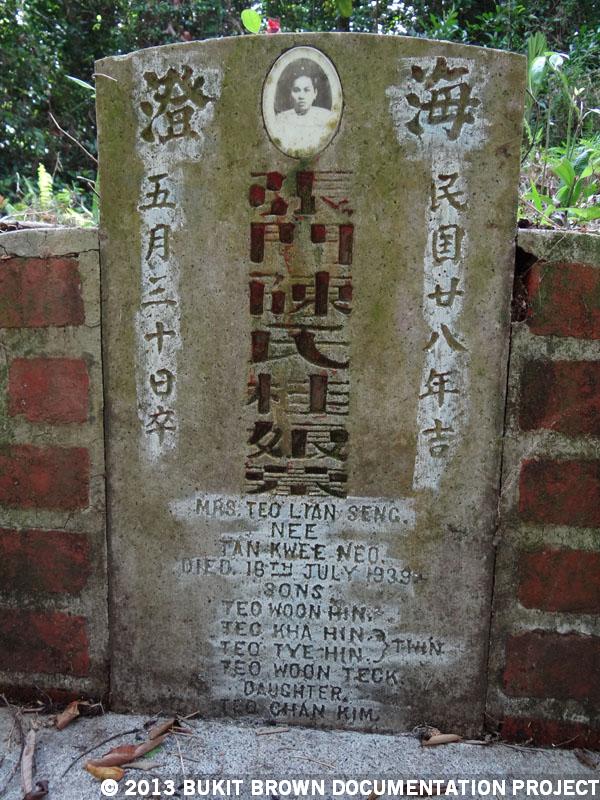 海澄
民国廿八年吉
張門陳氏桂娘墓
五月三十日卒
MRS. TEO LIAN SENG.
NEE
TAN KWEE NEO.
DIED. 16TH JULY 1939
SONS.
TEO WOON HIN.
TEO KHA HIN.
TEO TYE HIN. } TWIN
TEO WOON TECK
DAUGHTER.
TEO CHAN KIM.
© 2013 BUKIT BROWN DOCUMENTATION PROJECT